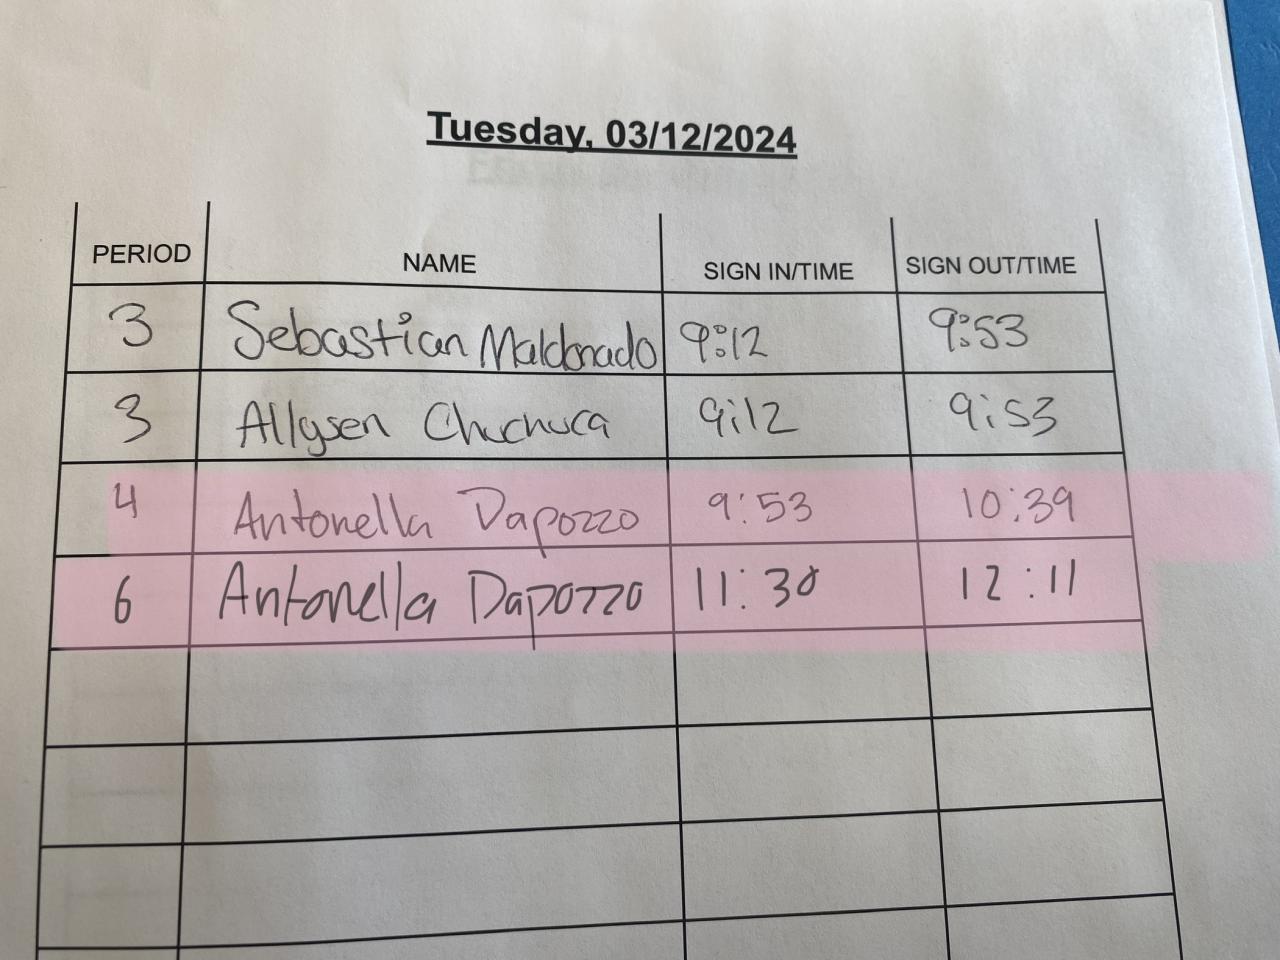 Tuesday, 03/12/2024
PERIOD NAME SIGN IN/TIME SIGN OUT/TIME
3 Sebastian Maldonado 9:12 9:53
3 Allysen Chuchuca 9:12 9:53
4 Antonella Dapozzo 9:53 10:39
6 Antonella Dapozzo 11:30 12:11